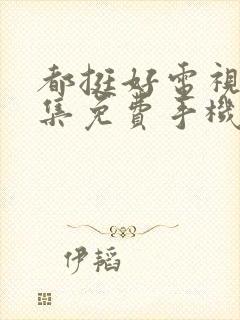 都挺好電視
集免費手機
伊韜